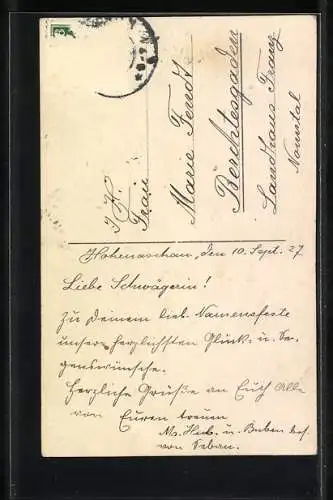 I. H.
Frau
Marie Fendt
Berchtesgaden
Landhaus Franz
Nonntal
Hohenaschau, den 10. Sept. 27
Liebe Schwägerin!
Zu Deinem lieb. Namensfeste
unsere herzlichsten Glück- u. Se-
genswünsche.
Herzliche Grüße an Euch Alle
von Euren treuen
u. Buben bes.
von